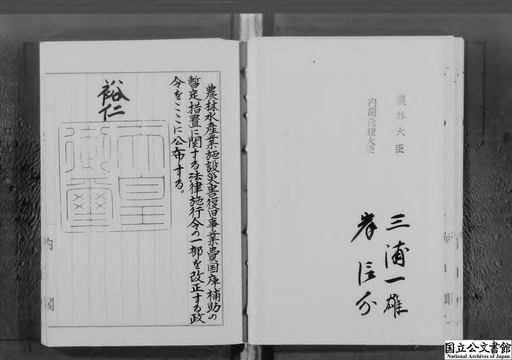 農林水産業施設災害復旧事業費国庫補助の
暫定措置に関する法律施行令の一部を改正する政
令をここに公布する。
裕仁
天皇
御璽
内閣
農林大臣
三浦一雄
内閣総理大臣
岸信介
国立公文書館
National Archives of Japan